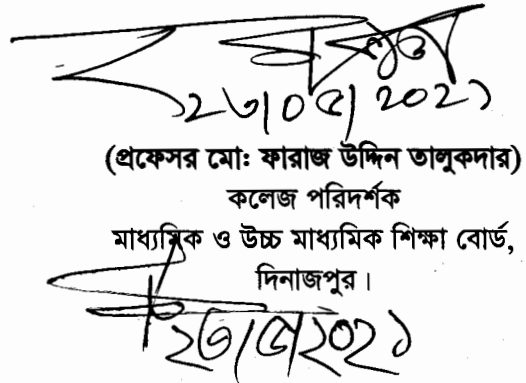 ২৬/০৫/২০২১
(প্রফেসর মো: ফারাজ উদ্দিন তালুকদার)
কলেজ পরিদর্শক
মাধ্যমিক ও উচ্চ মাধ্যমিক শিক্ষা বোর্ড,
দিনাজপুর।
২৬/৫/২০২১